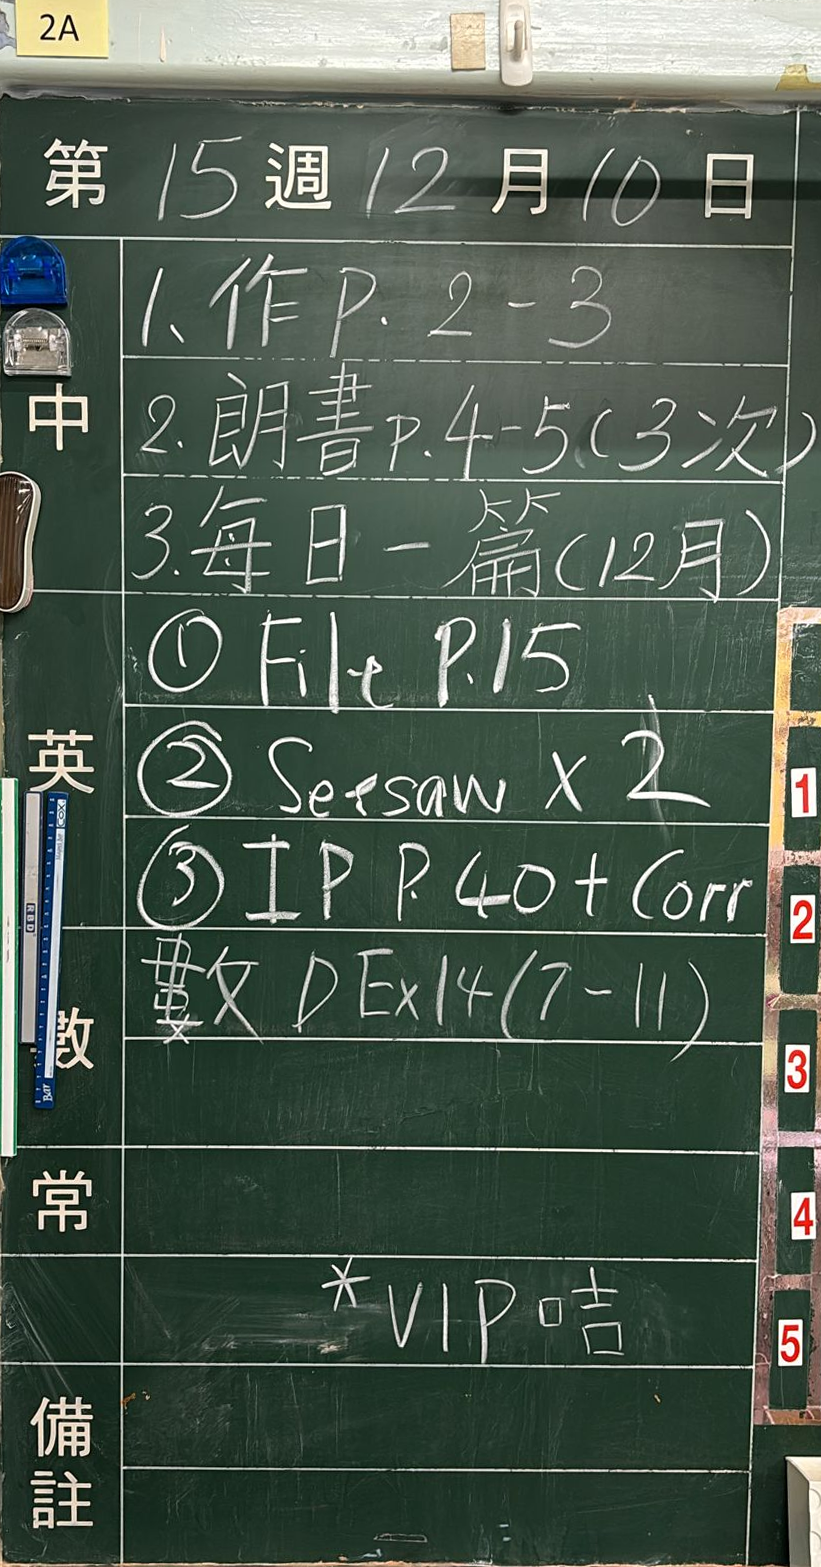 2A
第 15 週 12 月 10 日
中
1、作 P. 2-3
2. 朗書 P. 4-5 (3次)
3. 每日一篇 (12月)
英
① File P.15
② Seesaw x 2
③ IP P. 40 + Corr
數
數 D Ex14 (7-11)
常
*VIP咭
備註
1
2
3
4
5
RBD
COX
Bar